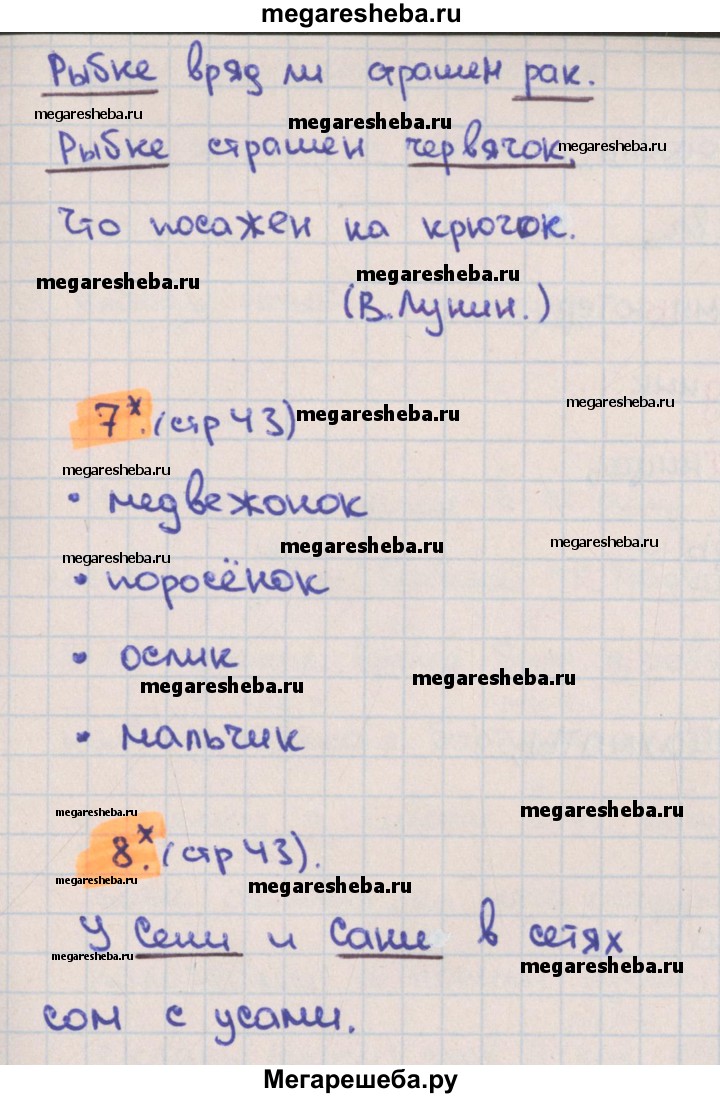 megaresheba.ru
Рыбке вряд ли страшен рак.
megaresheba.ru
megaresheba.ru
Рыбке страшен червячок,
megaresheba.ru
Что посажен на крючок.
megaresheba.ru
megaresheba.ru
(В. Лунин.)
7*. (стр 43)
megaresheba.ru
megaresheba.ru
megaresheba.ru
• медвежонок
megaresheba.ru
megaresheba.ru
megaresheba.ru
• поросёнок
• ослик
megaresheba.ru
megaresheba.ru
• мальчик
megaresheba.ru
megaresheba.ru
8*. (стр 43).
megaresheba.ru
megaresheba.ru
У Сени и Сани в сетях
megaresheba.ru
megaresheba.ru
сом с усами.
Мегарешеба.ру